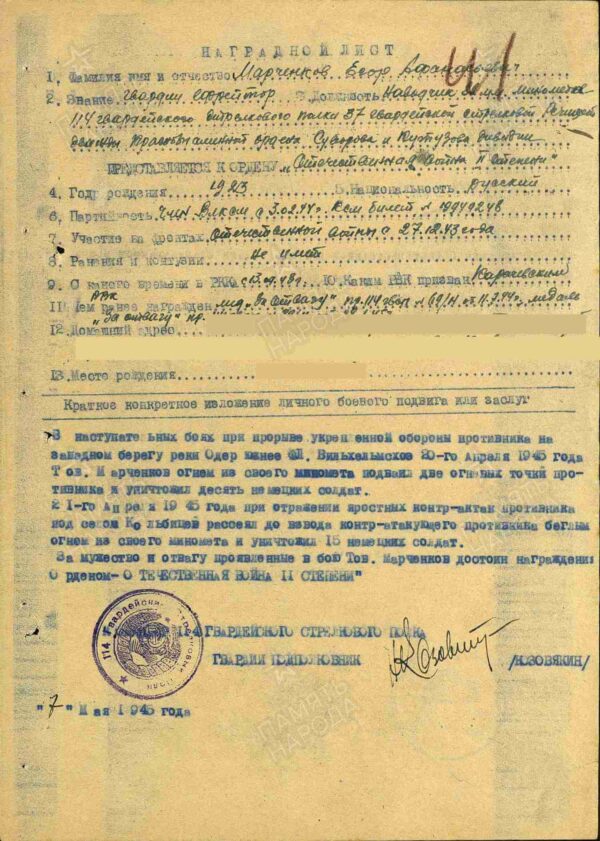 НАГРАДНОЙ ЛИСТ
1. Фамилия имя и отчество Марченков Егор
2. Звание гвардии ефрейтор 3. Должность Наводчик миномета
114 гвардейского стрелкового полка 37 гвардейской стрелковой Речицкой
ордена Суворова и Кутузова дивизии
ПРЕДСТАВЛЯЕТСЯ К ОРДЕНУ „Отечественная война II степени"
4. Год рождения 1923 5. Национальность Русский
6. Партийность Член ВЛКСМ с 3.02.44г. Ксм билет №
7. Участие на фронтах Отечественной войны с 27.12.43 года
8. Ранения и контузии не имеет
9. С какого времени в РККА 10. Каким РВК призван Карачевским
РВК
11. Чем ранее награжден мед „За отвагу" пр. 114 медаль
„За отвагу" пр.
12. Домашний адрес
13. Место рождения
Краткое конкретное изложение личного боевого подвига или заслуг
В наступательных боях при прорыве укрепленной обороны противника на
западном берегу реки Одер южнее ФЛ. Вильхельмсхое 20-го Апраля 1945 года
Тов. Марченков огнем из своего миномета подваил две огнавых точки про-
тивника и уничтожил десять немецких солдат.
21-го Апреля 1945 года при отражении яростных контр-актак противника
под селом Кольбицев рассеял до взвода контр-атакующего противника беглым
огнем из своего миномета и уничтожил 15 немецких солдат.
За мужество и отвагу проявленные в бою Тов. Марченков достоин награждения
Орденом- ОТЕЧЕСТВЕННАЯ ВОЙНА II СТЕПЕНИ"
114 ГВАРДЕЙСКОГО СТРЕЛКОВОГО ПОЛКА
ГВАРДИИ ПОДПОЛКОВНИК /КОЗОВЯКИН/
"7" Мая 1945 года
ПАМЯТЬ НАРОДА